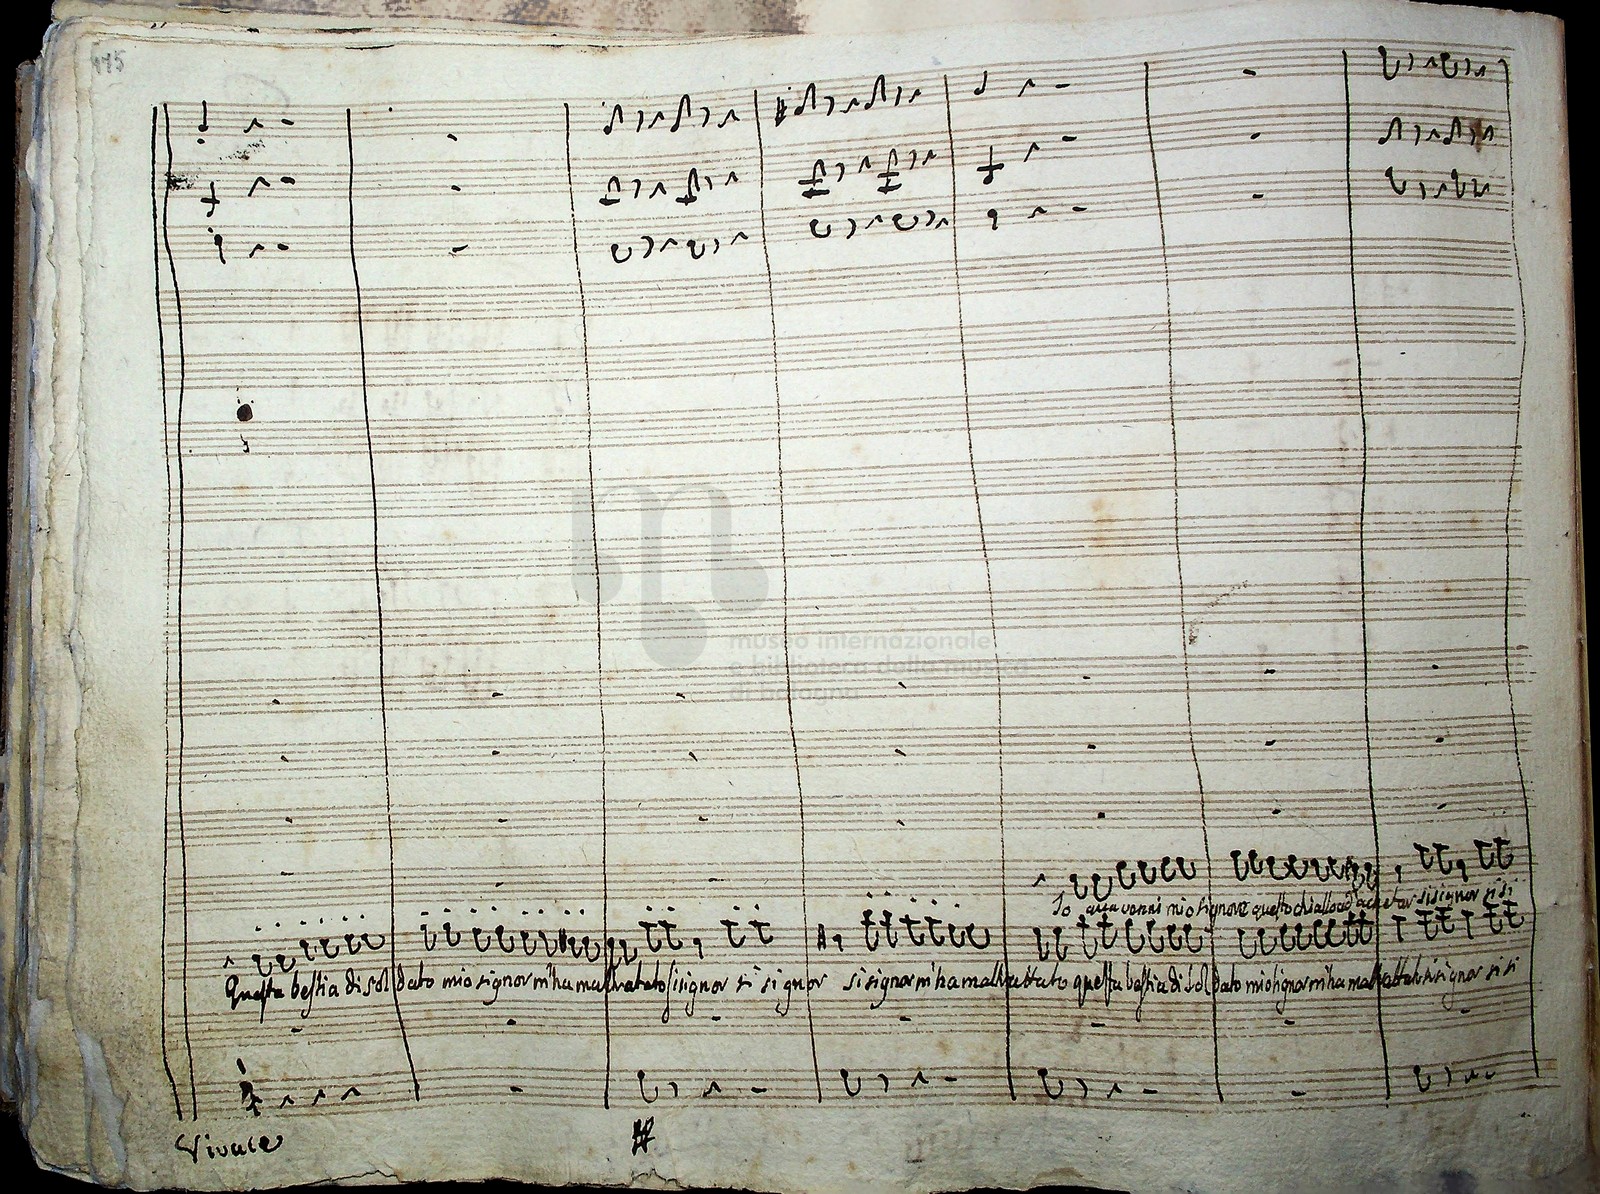 museo internazionale
e biblioteca della musica
di bologna
Io mio signore questo signor si si
Questa bestia di soldato mio signor m'ha maltratato si signor si si gnor si signor m'ha maltrattato questa bestia di soldato mio signor m'ha maltrattato si signor si si
Vivace